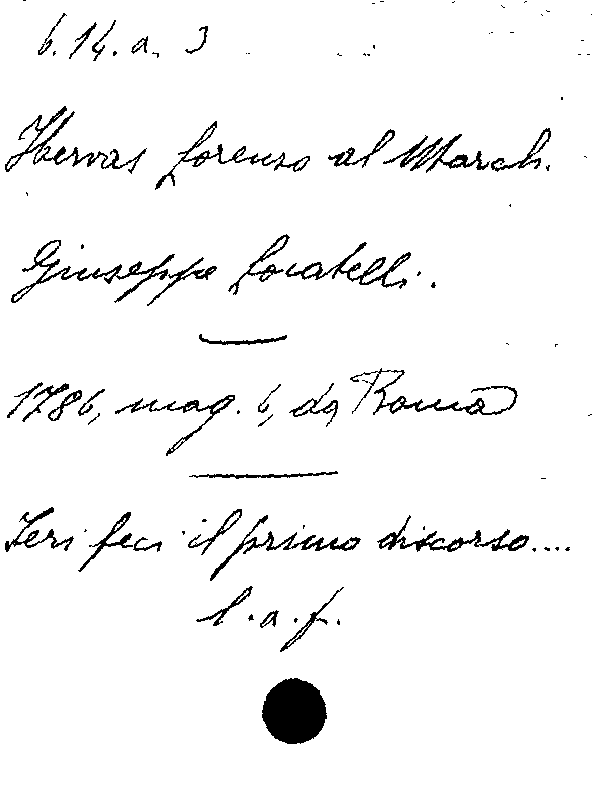 6.14.a. 3
Hervas Lorenzo al March.
Giuseppe Locatelli.
1786, mag. 6, da Roma
Ieri feci il primo discorso....
l.a.f.